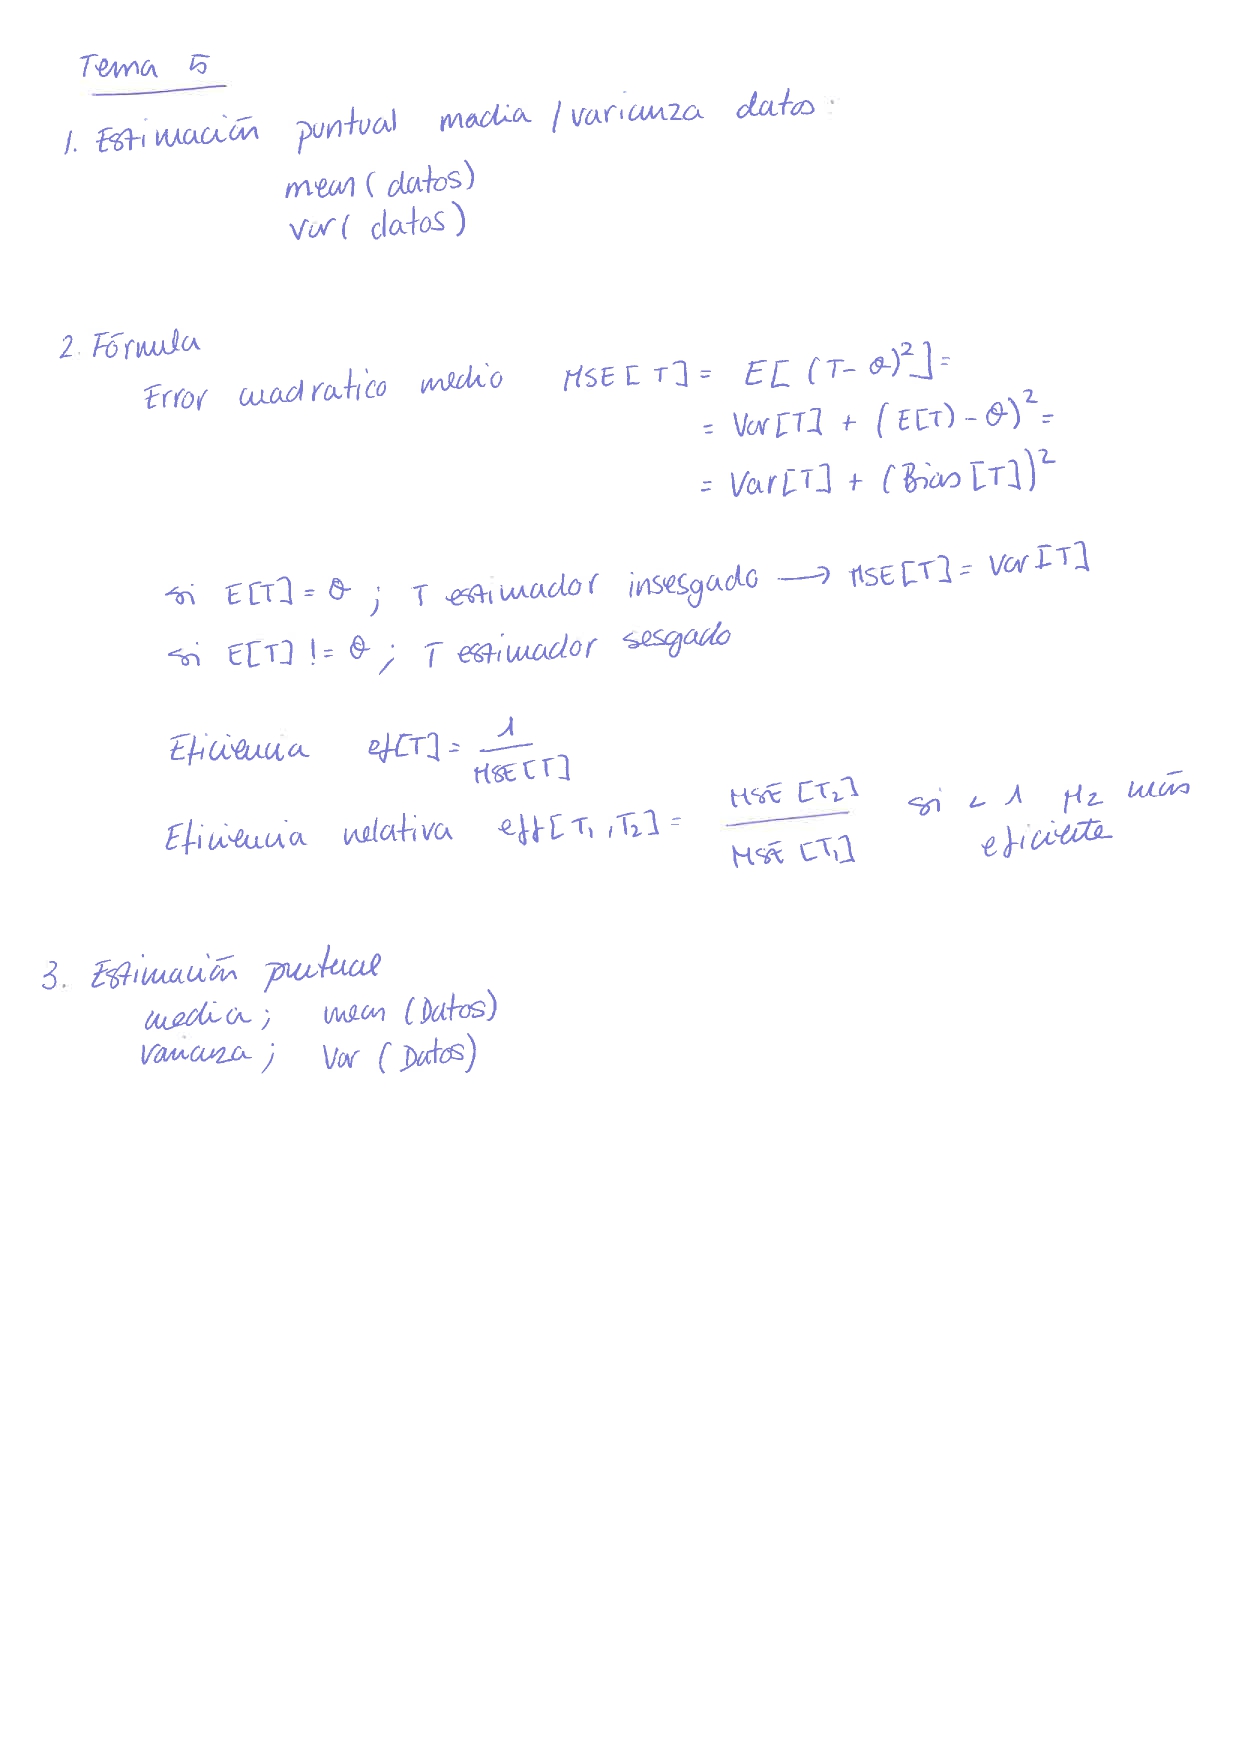 Tema 5
1. Estimación puntual media / varianza datos:
mean ( datos)
var ( datos)
2. Fórmula
Error cuadratico medio MSE [ T ] = E [ (T - θ)² ] =
= Var [T] + ( E[T) - θ)² =
= Var [T] + (Bias [T])²
si E[T] = θ ; T estimador insesgado → MSE [T] = Var [T]
si E[T] != θ ; T estimador sesgado
Eficiencia ef[T] = 1 / MSE [T]
Eficiencia relativa eff [ T₁ , T₂ ] = MSE [T₂] / MSE [T₁] si < 1 μ₂ más
eficiente
3. Estimación puntual
media ; mean (Datos)
varianza ; Var ( Datos)